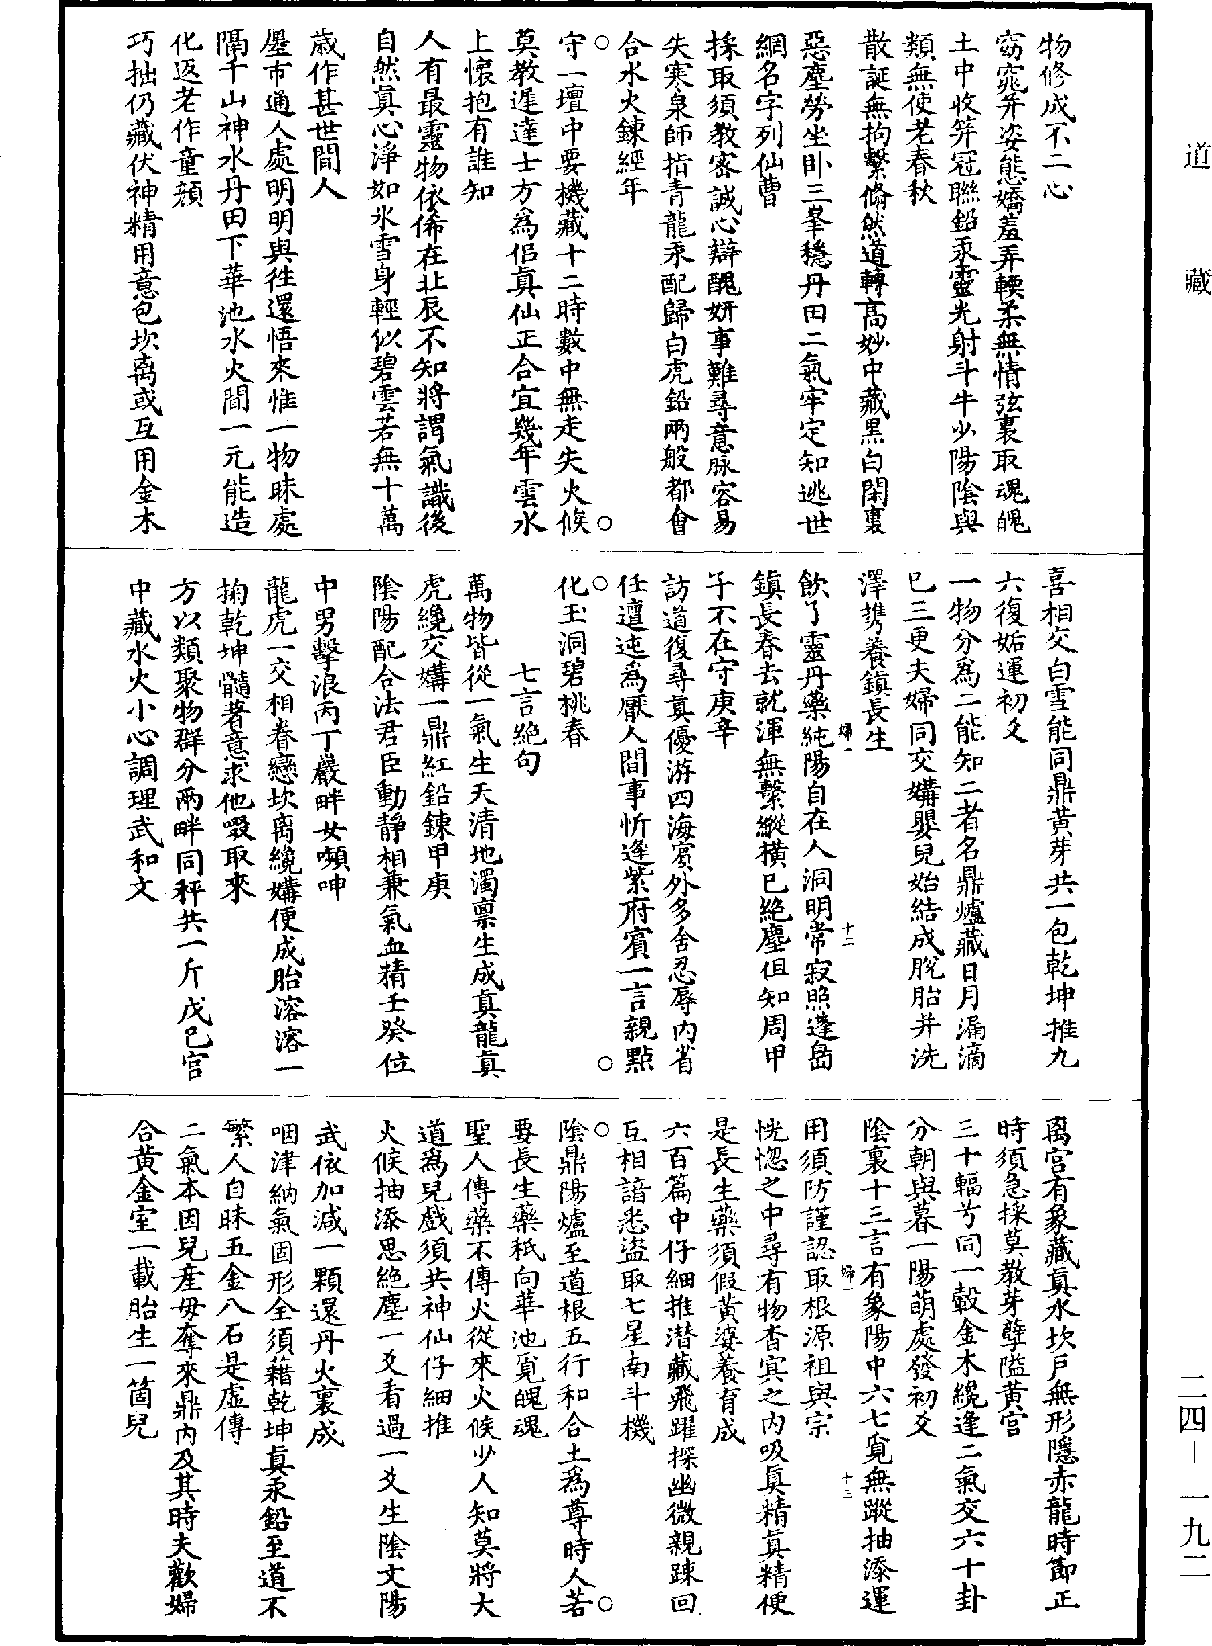 道藏
物修成不二心
窈窕笄姿態嬌羞弄輭柔無情弦裏取魂魄
土中收笄冠聯鉛汞靈光射斗牛少陽陰與
類無使老春秋
散誕無拘繫翛然道轉高妙中藏黑白閑裏
惡塵勞坐卧三峯穩丹田二氣牢定知逃世
網名字列仙曹
採取須教審誠心辯醜妍事難尋意脉容易
失寒泉師指青龍汞配歸白虎鉛兩般都會
合水火鍊經年
○○
守一壇中要機藏十二時數中無走失火候
莫教遲達士方爲侣真仙正合宜幾年雲水
上懷抱有誰知
人有最靈物依俙在北辰不知將謂氣識後
自然真心淨如氷雪身輕似碧雲若無十萬
歲作甚世間人
㕓市通人處明明與徃還悟來惟一物昧處
隔千山神水丹田下華池水火間一元能造
化返老作童顔
巧拙仍藏伏神精用意包坎离或互用金木
喜相交白雪能同鼎黄芽共一包乾坤推九
六復姤運初爻
一物分爲二能知二者名鼎爐藏日月漏滴
巳三更夫婦同交媾嬰兒始結成脫胎并洗
澤㩦養鎮長生
歸一
十二
飲了靈丹藥純陽自在人洞明常寂照蓬島
鎮長春去就渾無繫縱橫已絶塵但知周甲
子不在守庚辛
訪道復尋真優游四海賓外多舍忍辱内省
任邅迍爲厭人間事忻逢紫府賓一言親點
○○
化玉洞碧桃春
七言絶句
萬物皆從一氣生天清地濁禀生成真龍真
虎纔交媾一鼎紅鉛鍊甲庚
陰陽配合法君臣動靜相兼氣血精壬癸位
中男擊浪丙丁巖畔女嚬呻
龍虎一交相眷戀坎离纔媾便成胎溶溶一
掬乾坤髓著意求他啜取來
方以類聚物群分兩畔同秤共一斤戊己宫
中藏水火小心調理武和文
离宫有象藏真水坎戶無形隱赤龍時節正
時須急採莫教芽孽隘黄宫
三十輻兮同一轂金木纔逢二氣交六十卦
分朝與暮一陽萌處發初爻
陰裏十三言有象陽中六七覓無蹤抽添運
歸一
十三
用須防謹認取根源祖與宗
恍惚之中尋有物杳冥之内吸真精真精便
是長生藥須假黄婆養育成
六百篇中仔細推潛藏飛躍探幽微親踈回
互相諳悉盗取七星南斗機
○○
陰鼎陽爐至道根五行和合土爲尊時人若
要長生藥秖向華池覓魄魂
聖人傳藥不傳火從來火候少人知莫將大
道爲兒戲須共神仙仔細推
火候抽添思絶塵一爻看過一爻生陰文陽
武依加減一顆還丹火裏成
咽津納氣固形全須藉乾坤真汞鉛至道不
繁人自昧五金八石是虚傳
二氣本因兒産毋奪來鼎内及其時夫歡婦
合黄金室一載胎生一箇兒
二四—一九二